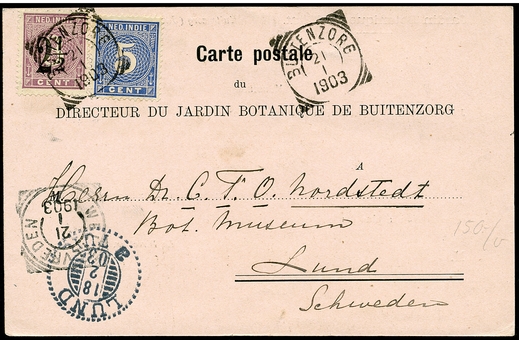 NED.INDIE NED.INDIE
2½ 5
CENT CENT
BUITENZORG
21
1
1903
Carte postale
BUITENZORG
21
1
1903
du
DIRECTEUR DU JARDIN BOTANIQUE DE BUITENZORG
A
Herrn Dr. C. F. O. Nordstedt
Bot. Museum
Lund
Schweden
WELTEVREDEN
21
1
1903
LUND
18
2
03
150-/